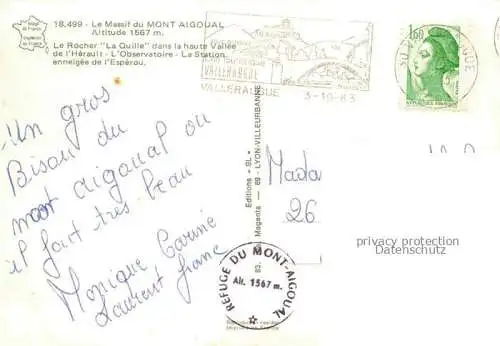 18.499 - Le Massif du MONT AIGOUAL
Altitude 1567 m.
Le Rocher "La Quille" dans la haute Vallée
de l'Hérault - L'Observatoire - La Station
enneigée de l'Espérou.
VALLERAUGUE
VALLERAUGUE
3-10-83
1,60
Un gros
Bisou du
mont aigoual ou
il fait très beau
Monique Carine
Laurent
Editions "SL"
Magenta - 69 - LYON-VILLEURBANNE
Mada
26
privacy protection
Datenschutz
REFUGE DU MONT-AIGOUAL
Alt. 1567 m.